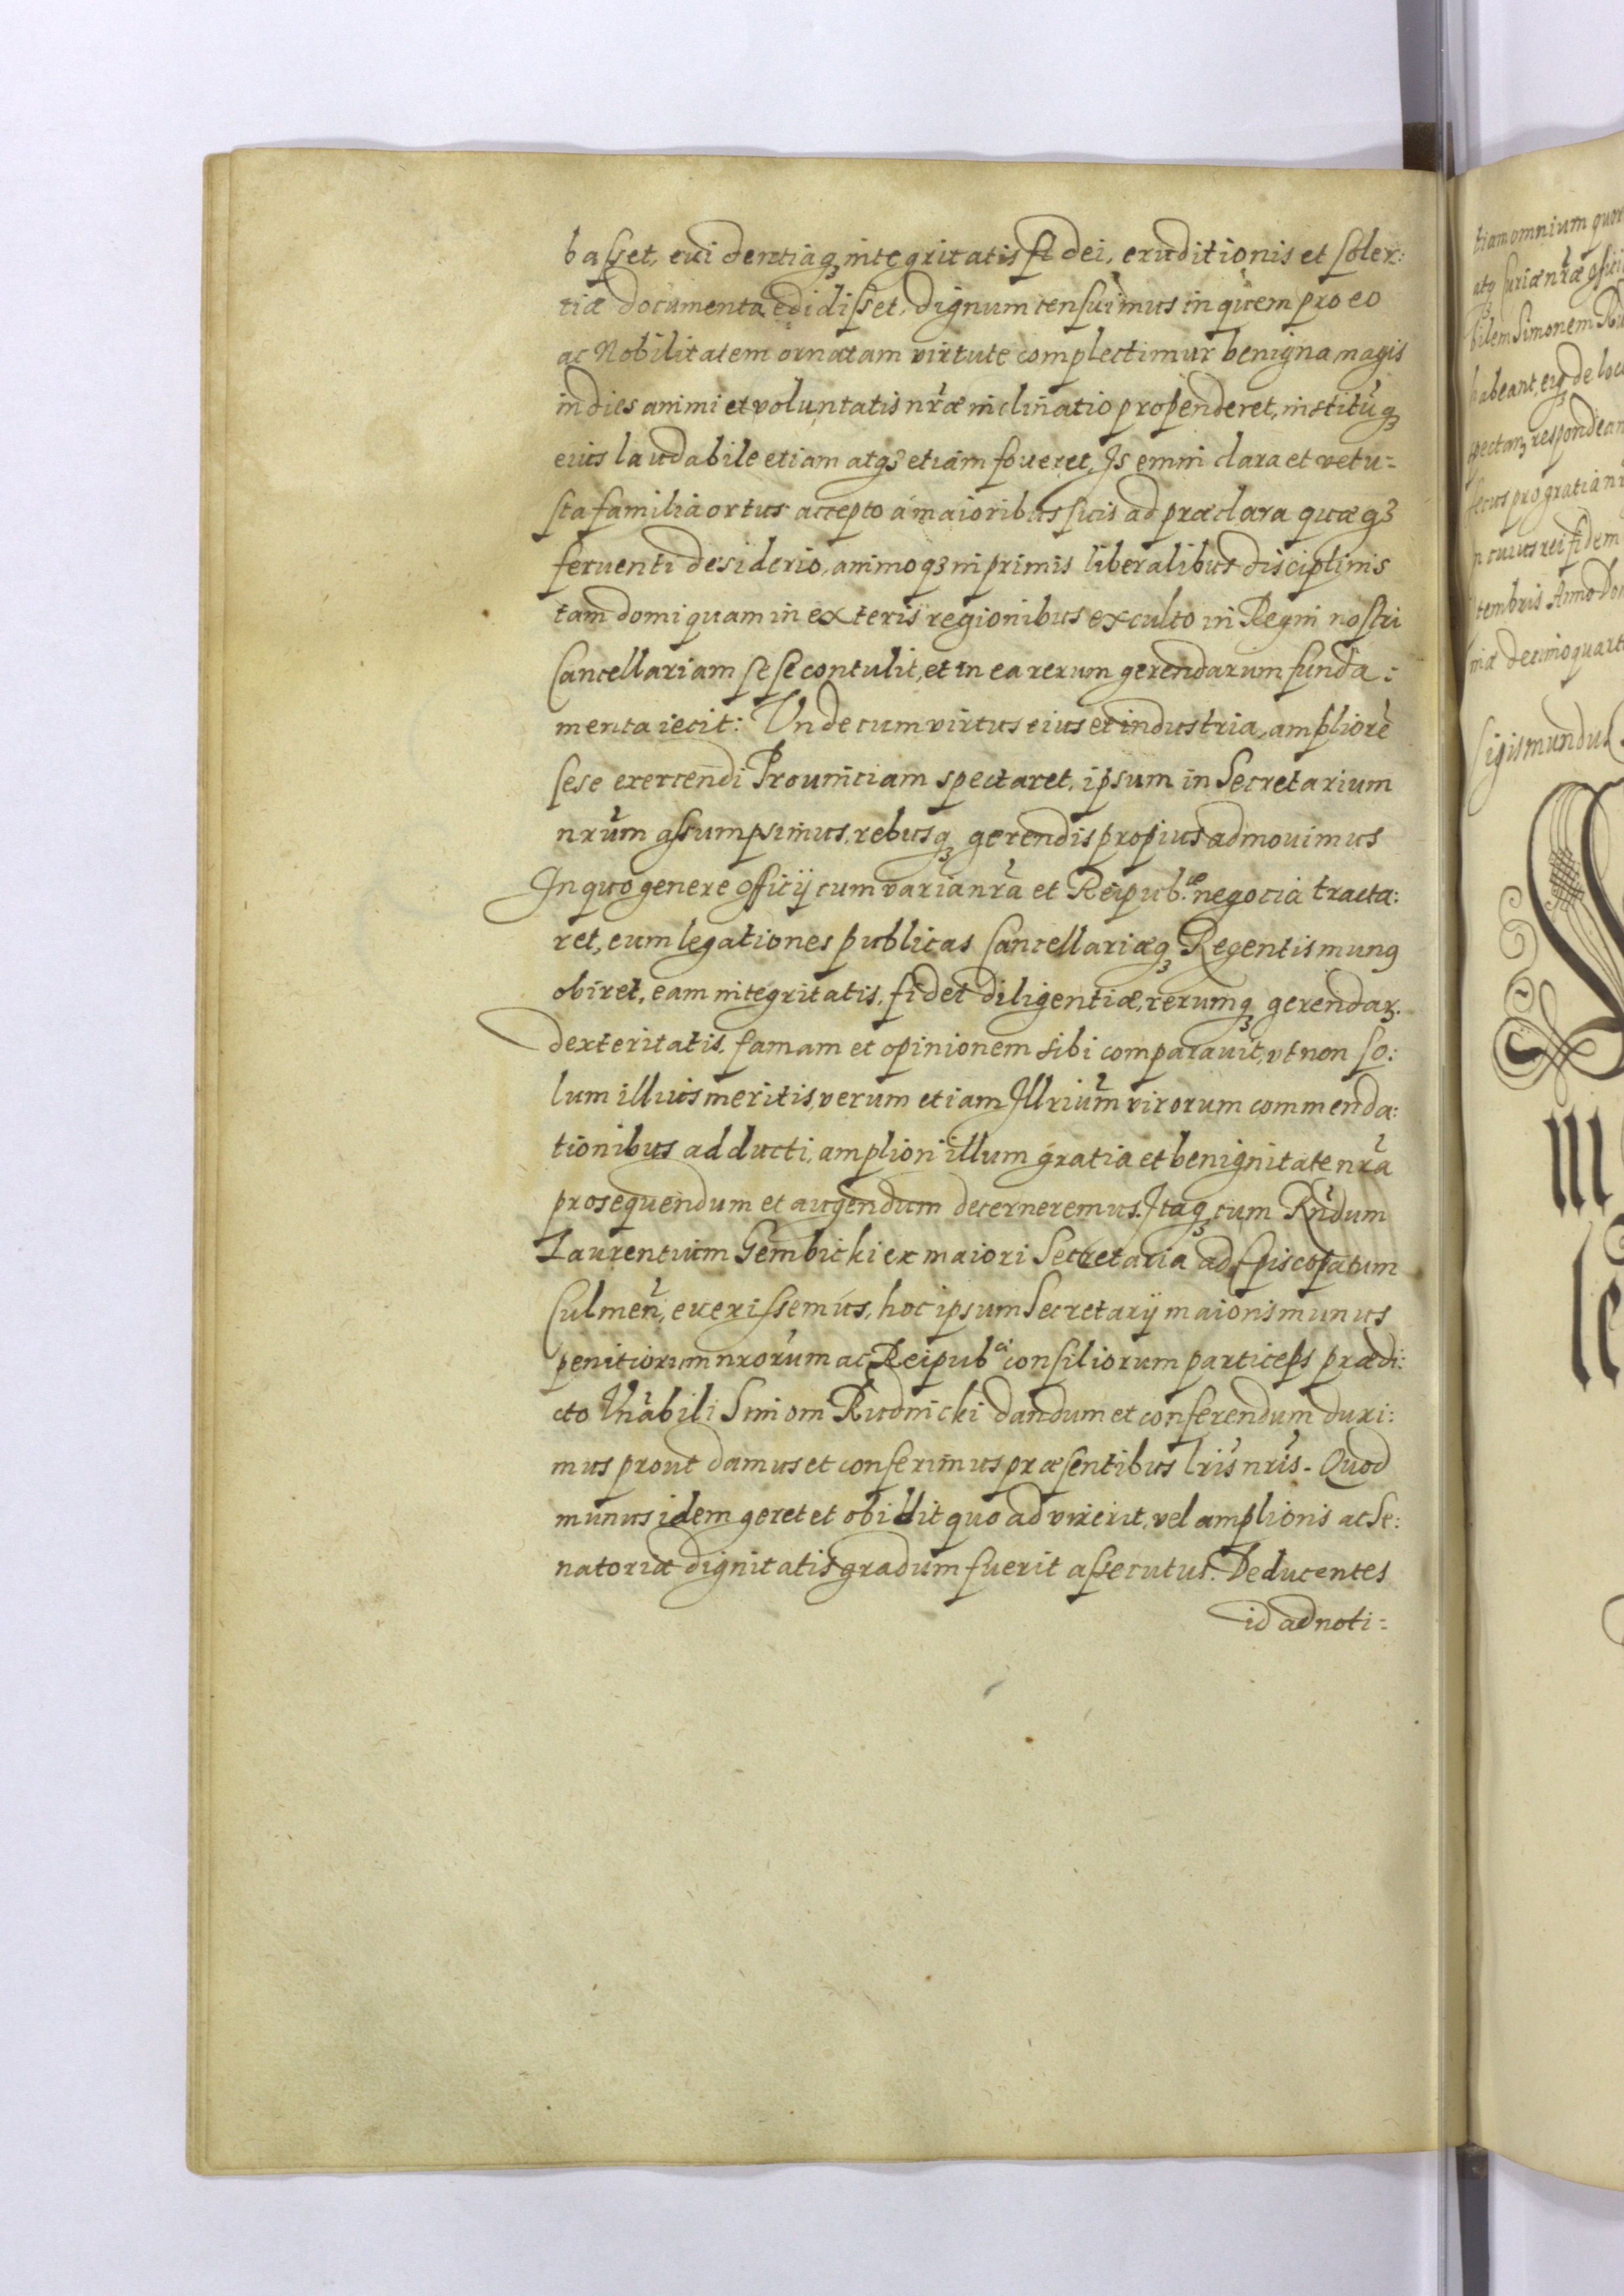 basset, euidentiaqꝫ integritatis fidei, eruditionis et soler:
tiæ documenta edidisset, dignum censuimus in quem pro eo
ac Nobilitatem ornatam virtute complectimur benigna magis
in dies animi et voluntatis nr̃æ inclinatio propenderet, institũqꝫ
eius laudabile etiam atqꝫ etiam foueret, Is enim clara et vetu=
sta familia ortus accepto á maioribus suis ad præclara quæqꝫ
feruenti desiderio, animoqꝫ inprimis liberalibus disciplinis
tam domi quam in exteris regionibus exculto in Regni nostri
Cancellariam sese contulit, et in ea rerum gerendarum funda:
menta iecit: Vnde cum virtus eius et industria, ampliorẽ
sese exercendi Prouinciam spectaret, ipsum in Secretarium
nrũm assumpsimus, rebusqꝫ gerendis propius admouimus
In quo genere officij cum varia nr̃a et Reipub.cæ negocia tracta:
ret, cum legationes publicas Cancellariæqꝫ Regentis munꝯ
obiret, eam integritatis, fidei diligentiæ, rerumqꝫ gerendaꝝ.
dexteritatis, famam et opinionem sibi comparauit, vt non so:
lum illius meritis, verum etiam Illriũm virorum commenda:
tionibus adducti, ampliori illum gratia et benignitate nr̃a
prosequendum et augendum decerneremus. Itaqꝫ cum Rñdum
Laurentium Gembicki ex maiori Secretaria ad Episcopatum
Culmeñ, euexissemus, hoc ipsum Secretarij maioris munus
penitiorum nrorũm ac Reipub.ci consiliorum particeps prædi:
cto Vnãbili Simoni Rudnicki dandum et conferendum duxi:
mus prout damus et conferimus præsentibus lrĩs nrĩs. Quod
munus idem geret et obibit quo ad vixerit, vel amplioris ac Se:
natoriæ dignitatis gradum fuerit assecutus. Deducentes
id ad noti=
tiam omnium quor
atqꝫ Curiæ nr̃æ
bilem Simonem
habeant, eiqꝫ de loc
respondean
secus pro gratia
In cuius rei fidem
tembris Anno Do
niæ decimo quart
Sigismundus